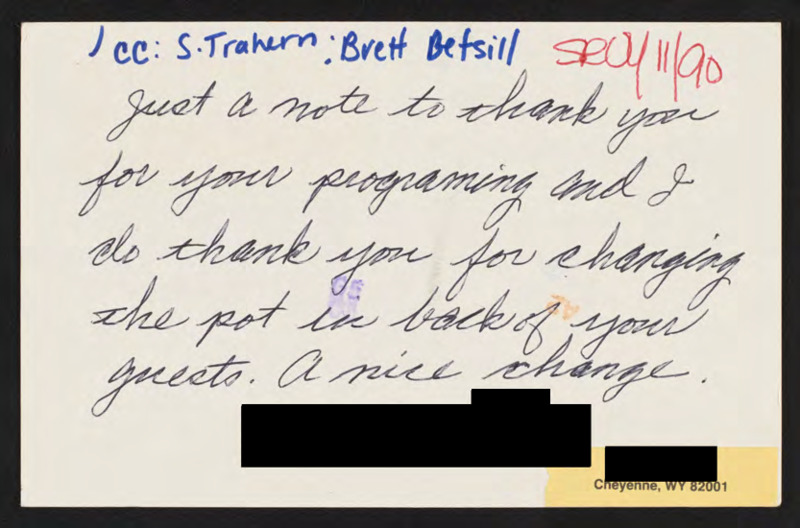 cc: S. Trahern; Brett Betsill
11/90
Just a note to thank you
for your programing and I
do thank you for changing
the pot in back of your
guests. A nice change.
Cheyenne, WY 82001